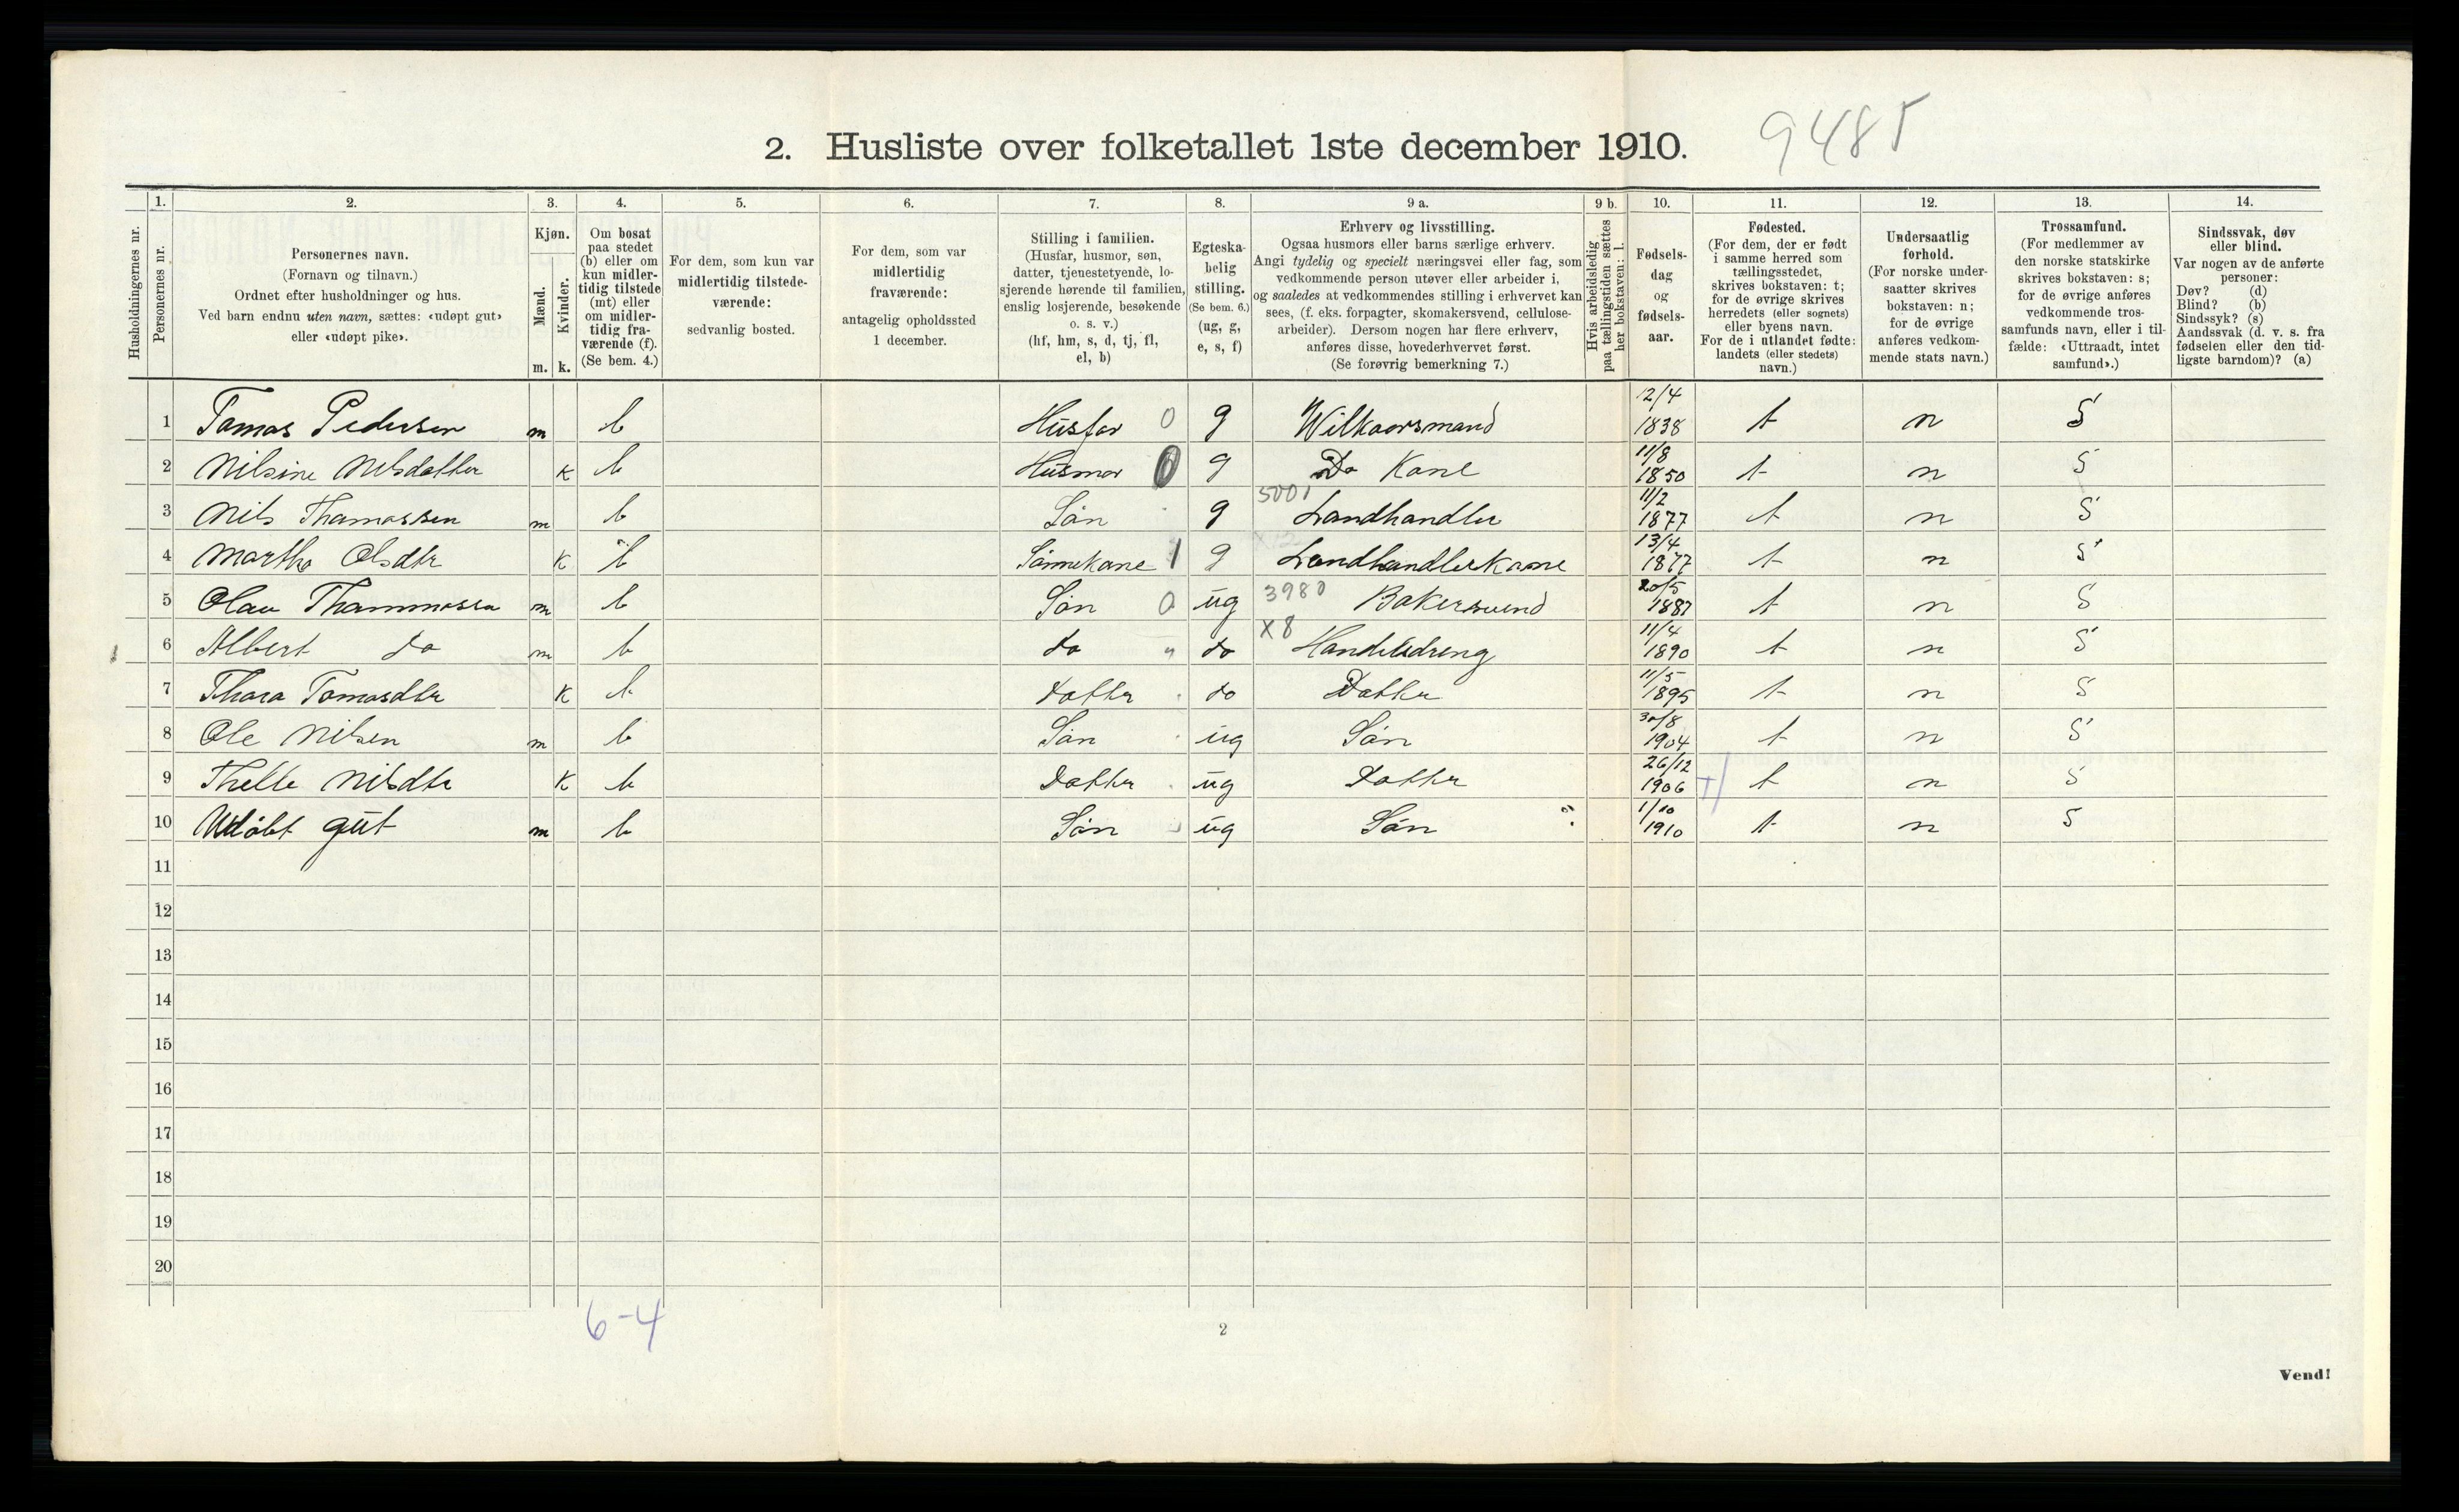 2. Husliste over folketallet 1ste december 1910.
9485
Husholdningernes nr.
1.
Personernes nr.
2.
Personernes navn.
(Fornavn og tilnavn.)
Ordnet efter husholdninger og hus.
Ved barn endnu uten navn, sættes: «udøpt gut»
eller «udøpt pike».
3.
Kjøn.
Mænd.
Kvinder.
m. k.
4.
Om bosat
paa stedet
(b) eller om
kun midler-
tidig tilstede
(mt) eller
om midler-
tidig fra-
værende (f).
(Se bem. 4.)
5.
For dem, som kun var
midlertidig tilstede-
værende:
sedvanlig bosted.
6.
For dem, som var
midlertidig
fraværende:
antagelig opholdssted
1 december.
7.
Stilling i familien.
(Husfar, husmor, søn,
datter, tjenestetyende, lo-
sjerende hørende til familien,
enslig losjerende, besøkende
o. s. v.)
(hf, hm, s, d, tj, fl,
el, b)
8.
Egteska-
belig
stilling.
(Se bem. 6.)
(ug, g,
e, s, f)
9 a.
Erhverv og livsstilling.
Ogsaa husmors eller barns særlige erhverv.
Angi tydelig og specielt næringsvei eller fag, som
vedkommende person utøver eller arbeider i,
og saaledes at vedkommendes stilling i erhvervet kan
sees, (f. eks. forpagter, skomakersvend, cellulose-
arbeider). Dersom nogen har flere erhverv,
anføres disse, hovederhvervet først.
(Se forøvrig bemerkning 7.)
9 b.
Hvis arbeidsledig
paa tællingstiden sættes
her bokstaven: l.
10.
Fødsels-
dag
og
fødsels-
aar.
11.
Fødested.
(For dem, der er født
i samme herred som
tællingsstedet,
skrives bokstaven: t;
for de øvrige skrives
herredets (eller sognets)
eller byens navn.
For de i utlandet fødte:
landets (eller stedets)
navn.)
12.
Undersaatlig
forhold.
(For norske under-
saatter skrives
bokstaven: n;
for de øvrige
anføres vedkom-
mende stats navn.)
13.
Trossamfund.
(For medlemmer av
den norske statskirke
skrives bokstaven: s;
for de øvrige anføres
vedkommende tros-
samfunds navn, eller i til-
fælde: «Uttraadt, intet
samfund».)
14.
Sindssvak, døv
eller blind.
Var nogen av de anførte
personer:
Døv? (d)
Blind? (b)
Sindssyk? (s)
Aandssvak (d. v. s. fra
fødselen eller den tid-
ligste barndom)? (a)
1 Tomas Pedersen m b Husfar 0 g Wilkaarsmand 12/4 1838 t n S
2 Nilsine Nilsdatter k b Husmor 0 g Do Kone 11/8 1850 t n S
3 Nils Thomassen m b Sön g 5001 Landhandler 11/2 1877 t n S
4 Martha Olsdtr k b Sönnekone 1 g Landhandlerkone 13/4 1877 t n S
5 Olau Thommassen m b Sön 0 ug 3980 Bakersvend 20/5 1887 t n S
6 Albert do m b do " do X8 Handelsdreng 11/4 1890 t n S
7 Thora Tomasdtr k b Datter do Datter 11/5 1895 t n S
8 Ole Nilsen m b Sön ug Sön 30/8 1904 t n S
9 Thelle Nilsdtr k b Datter ug Datter 26/12 1906 t n S
10 Udöbt gut m b Sön ug Sön 1/10 1910 t n S
11
12
13
14
15
16
17
18
19
20
6-4
2
Vend!